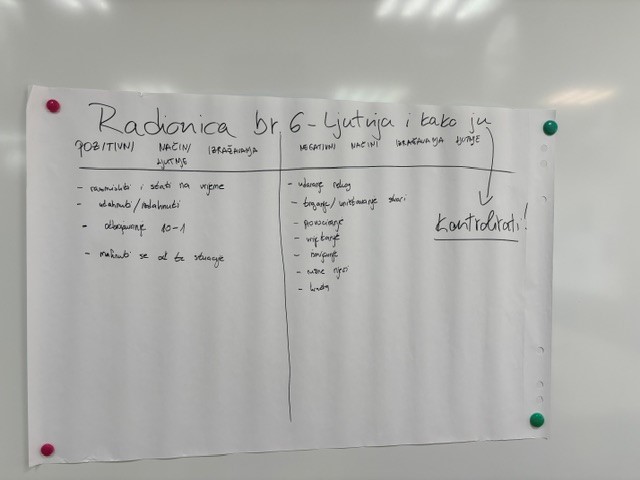 Radionica br. 6 - Ljutnja i kako ju
kontrolirati!
POZITIVNI NAČINI IZRAŽAVANJA
LJUTNJE
- razmisliti i stati na vrijeme
- udahnuti/izdahnuti
- odbrojavanje 10-1
- maknuti se od te situacije
NEGATIVNI NAČINI IZRAŽAVANJA LJUTNJE
- udaranje nekog
- trganje/uništavanje stvari
- provociranje
- vrijeđanje
- ružne riječi